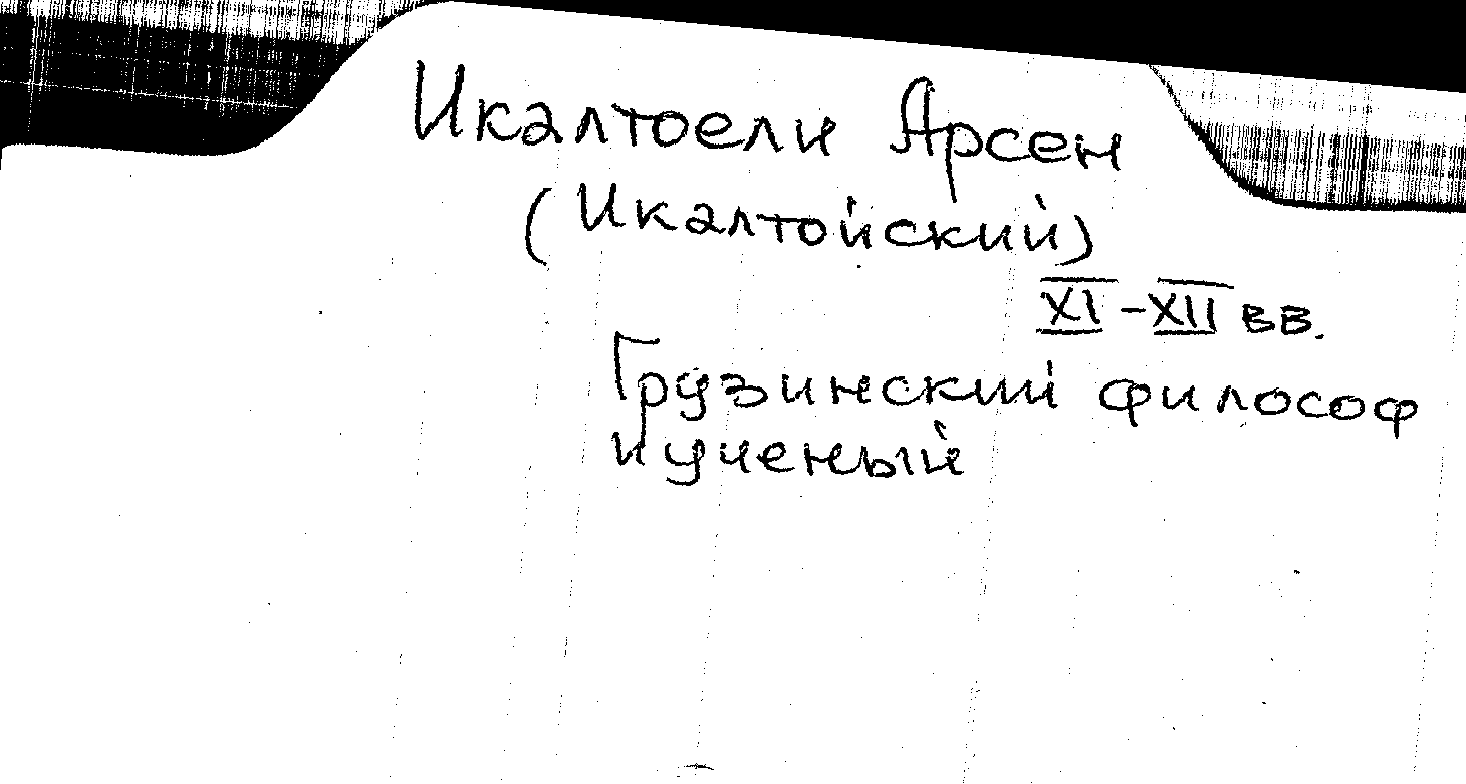 Икалтоели Арсен
(Икалтойский)
XI-XII вв.
Грузинский философ
и ученый